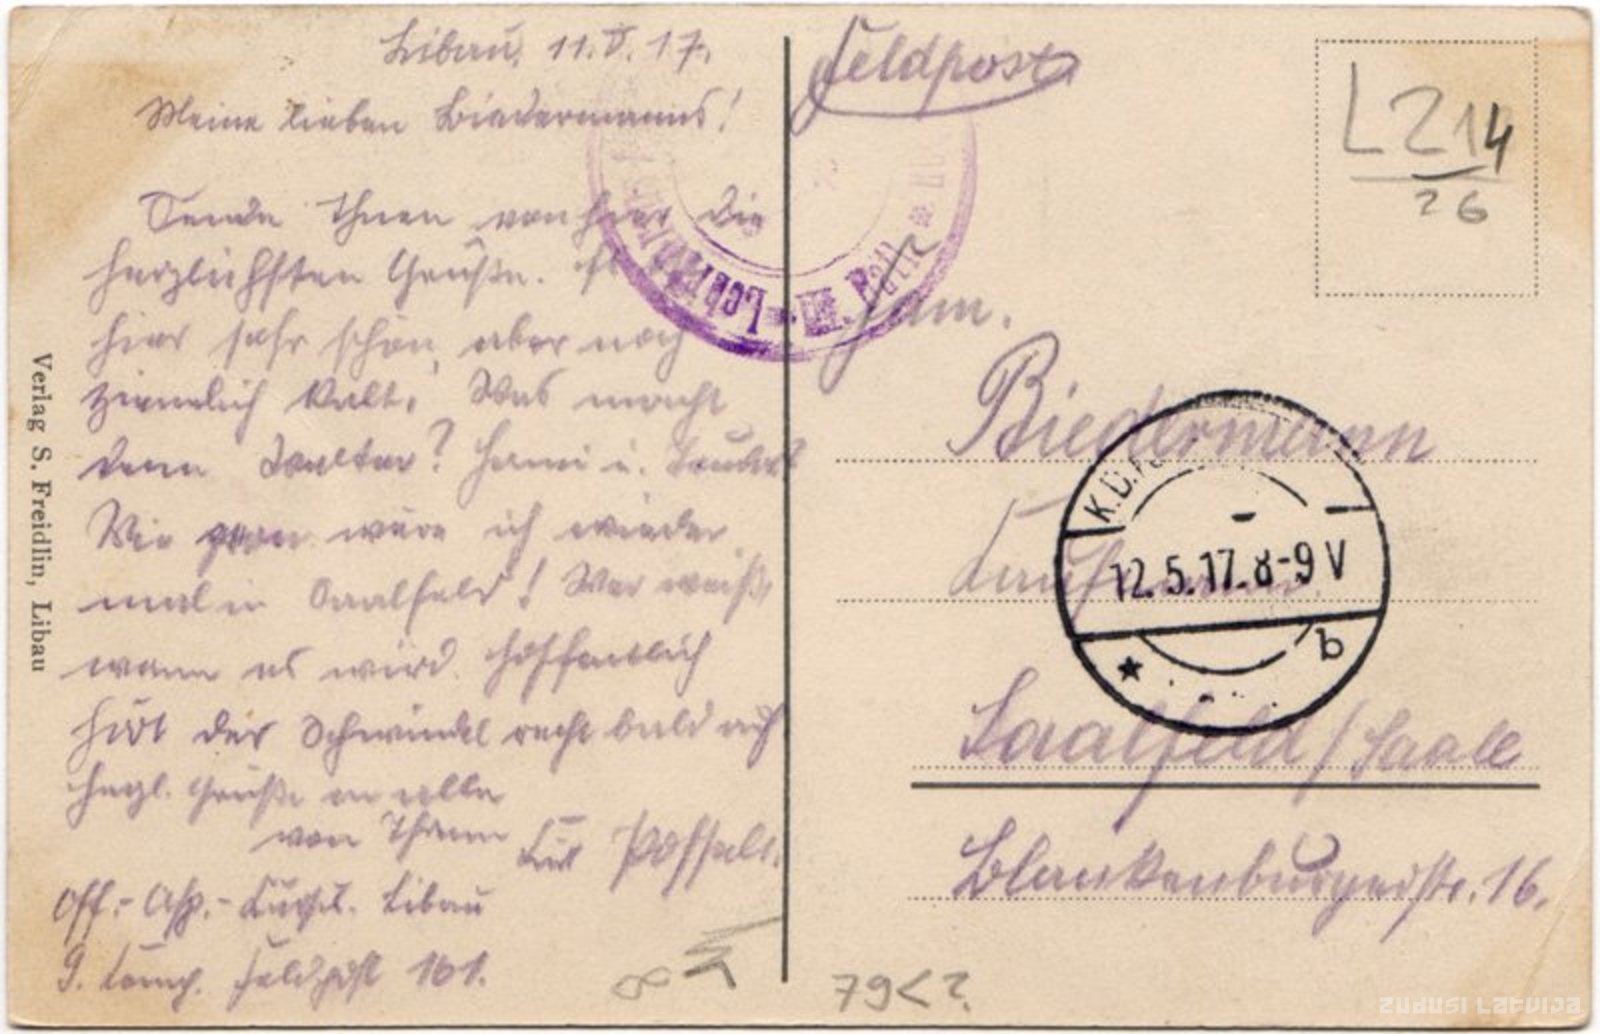 Libau, 11.V.17.
Meine lieben Biedermanns!
Sende Ihnen von hier die
herzlichsten Grüße.
hier sehr schön, aber noch
ziemlich kalt. Was macht
denn Walter?
Wie gern wäre ich wieder
mal in Saalfeld! Wer weiß,
wann es wird. Hoffentlich
hört der Schwindel recht bald auf
Herzl. Grüße an alle
von Ihrem Kurt Posselt.
Off.-Asp.-Libau
9. Komp. Feldpost 161.
Verlag S. Freidlin, Libau
Feldpost
LZ 14
26
Fam.
Biedermann
Kaufmann
Saalfeld/Saale
Blankenburgerstr. 16.
K.D.
12.5.17.8-9V
b
79<?
ZUDUSI LATVIJA